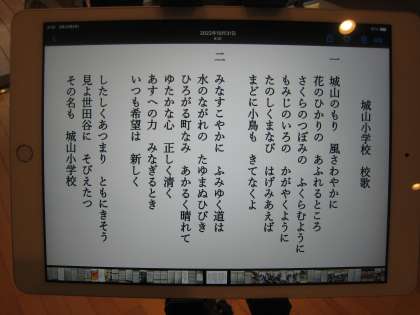 2022年10月31日
城山小学校 校歌
一 城山のもり 風さわやかに
花のひかりの あふれるところ
さくらのつぼみの ふくらむように
もみじのいろの かがやくように
たのしくまなび はげみあえば
まどに小鳥も きてなくよ
二 みなすこやかに ふみゆく道は
水のながれの たゆまぬひびき
ひろがる町なみ あかるく晴れて
ゆたかな心 正しく清く
あすへの力 みなぎるとき
いつも希望は 新しく
したしくあつまり ともにきそう
見よ世田谷に そびえたつ
その名も 城山小学校